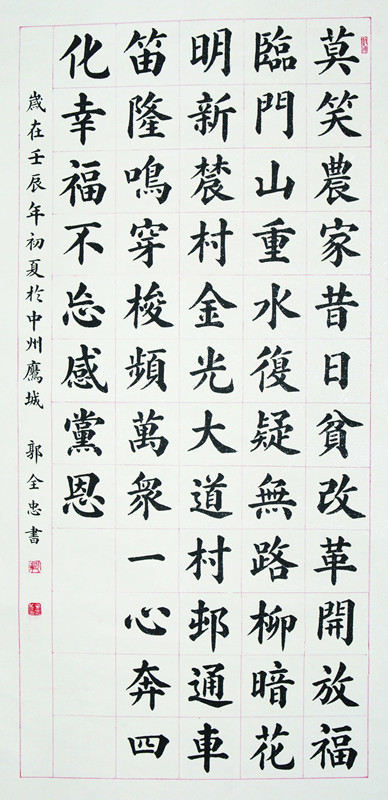 莫笑農家昔日貧改革開放福
臨門山重水復疑無路柳暗花
明新農村金光大道村邨通車
笛隆鳴穿梭頻萬衆一心奔四
化幸福不忘感黨恩
歲在壬辰年初夏於中州鷹城 郭全忠書